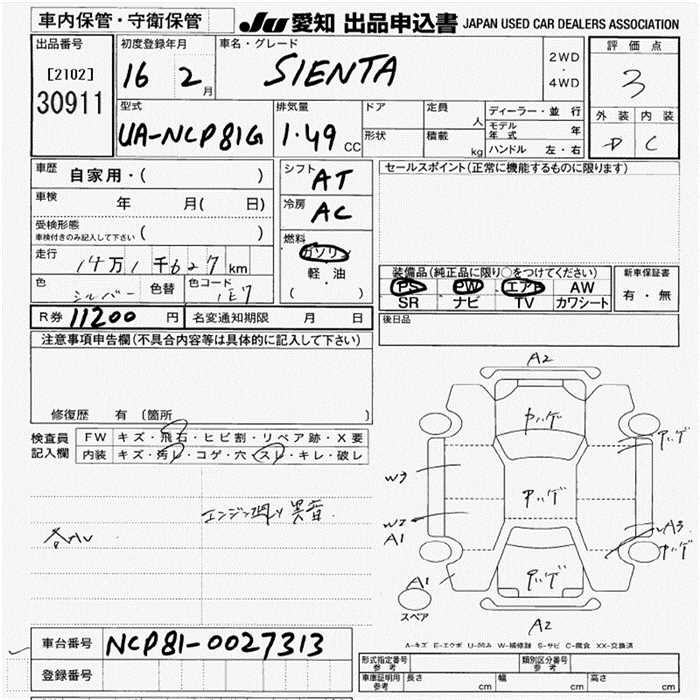 車内保管・守衛保管
JU 愛知 出品申込書 JAPAN USED CAR DEALERS ASSOCIATION
出品番号
[2102]
30911
初度登録年月
16 2 月
車名・グレード
SIENTA
2WD
・
4WD
評価点
3
外装 内装
D C
型式
UA-NCP81G
排気量
1.49 CC
ドア
形状
定員 人
積載 kg
ディーラー・並行
モデル年式 年
ハンドル 左・右
車歴 自家用・( )
車検 年 月( 日)
受検形態
車検付きのみ記入して下さい ( )
走行 14万1千627km
色 シルバー 色替 色コード 1E7
シフト AT
冷房 AC
燃料
ガソリン
軽・油
( )
セールスポイント(正常に機能するものに限ります)
装備品(純正品に限り○をつけてください)
PS PW エアB AW
SR ナビ TV カワシート
新車保証書
有・無
後日品
R券 11200 円 名変通知期限 月 日
注意事項申告欄(不具合内容等は具体的に記入して下さい)
修復歴 有〔箇所 〕
検査員記入欄
FW キズ・飛石・ヒビ割・リペア跡・X要
内装 キズ・汚レ・コゲ・穴・スレ・キレ・破レ
エンジン廻り異音
A2
ヤハゲ
ヤハゲ
W3
ヤハゲ
W2
A1
A3
ヤハゲ
A1
ヤハゲ
スペア
A2
A-キズ E-エクボ U-凹み W-補修跡 S-サビ C-腐食 XX-交換済
車台番号 NCP81-0027313
登録番号
形式指定番号 参考
類別区分番号 参考
車庫証明用 参考 長さ cm 幅 cm 高さ cm